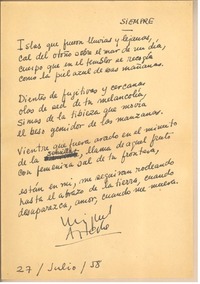 SIEMPRE
Islas que fueron lluvias y lejanas,
cal del otoño sobre el mar de un día,
cuerpo que en el temblor se recogía
como la piel azul de esas mañanas.
Diente de fugitivas y cercanas
olas de sed de tu melancolía,
Simas de la tibieza que movía
el beso gemidor de las manzanas.
Vientre que fuera arado en el minuto
de la llama de aquel fruto
con femenina sal de tu frontera,
están en mí, me seguirán rodeando
hasta el abrazo de la tierra, cuando
desaparezca, amor, cuando me muera.
Miguel
Arteche
27 / Julio / 58